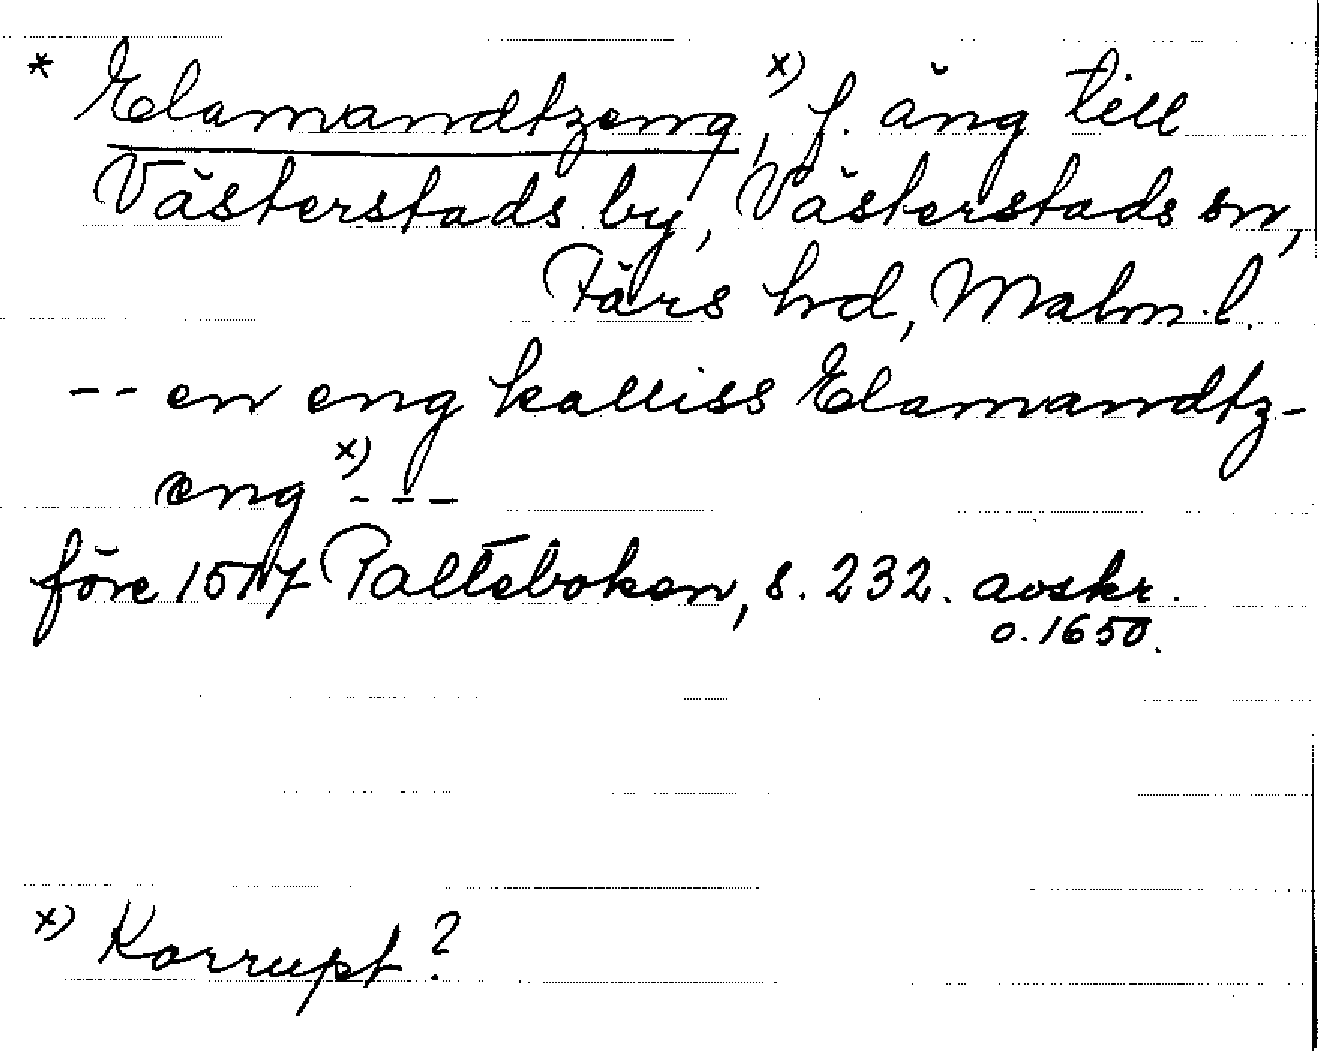 * Elamandtzeng, x) f. äng till
Västerstads by, Västerstads sn,
Färs hd, Malm. l.
-- en eng kalliss Elamandtz-
eng x) ---
före 1517 Palteboken, s. 232. avskr.
o. 1650.
x) Korrupt?